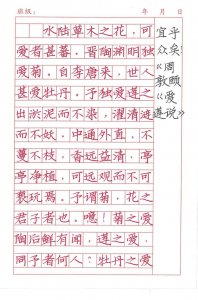 班级： 年 月 日
水陆草木之花，可
爱者甚蕃。晋陶渊明独
爱菊。自李唐来，世人
甚爱牡丹。予独爱莲之
出淤泥而不染，濯清涟
而不妖。中通外直，不
蔓不枝，香远益清，亭
亭净植，可远观而不可
亵玩焉。予谓菊，花之
君子者也。噫！菊之爱
陶后鲜有闻，莲之爱，
同予者何人？牡丹之爱
宜乎
众矣
《周
敦颐
《爱
莲说》